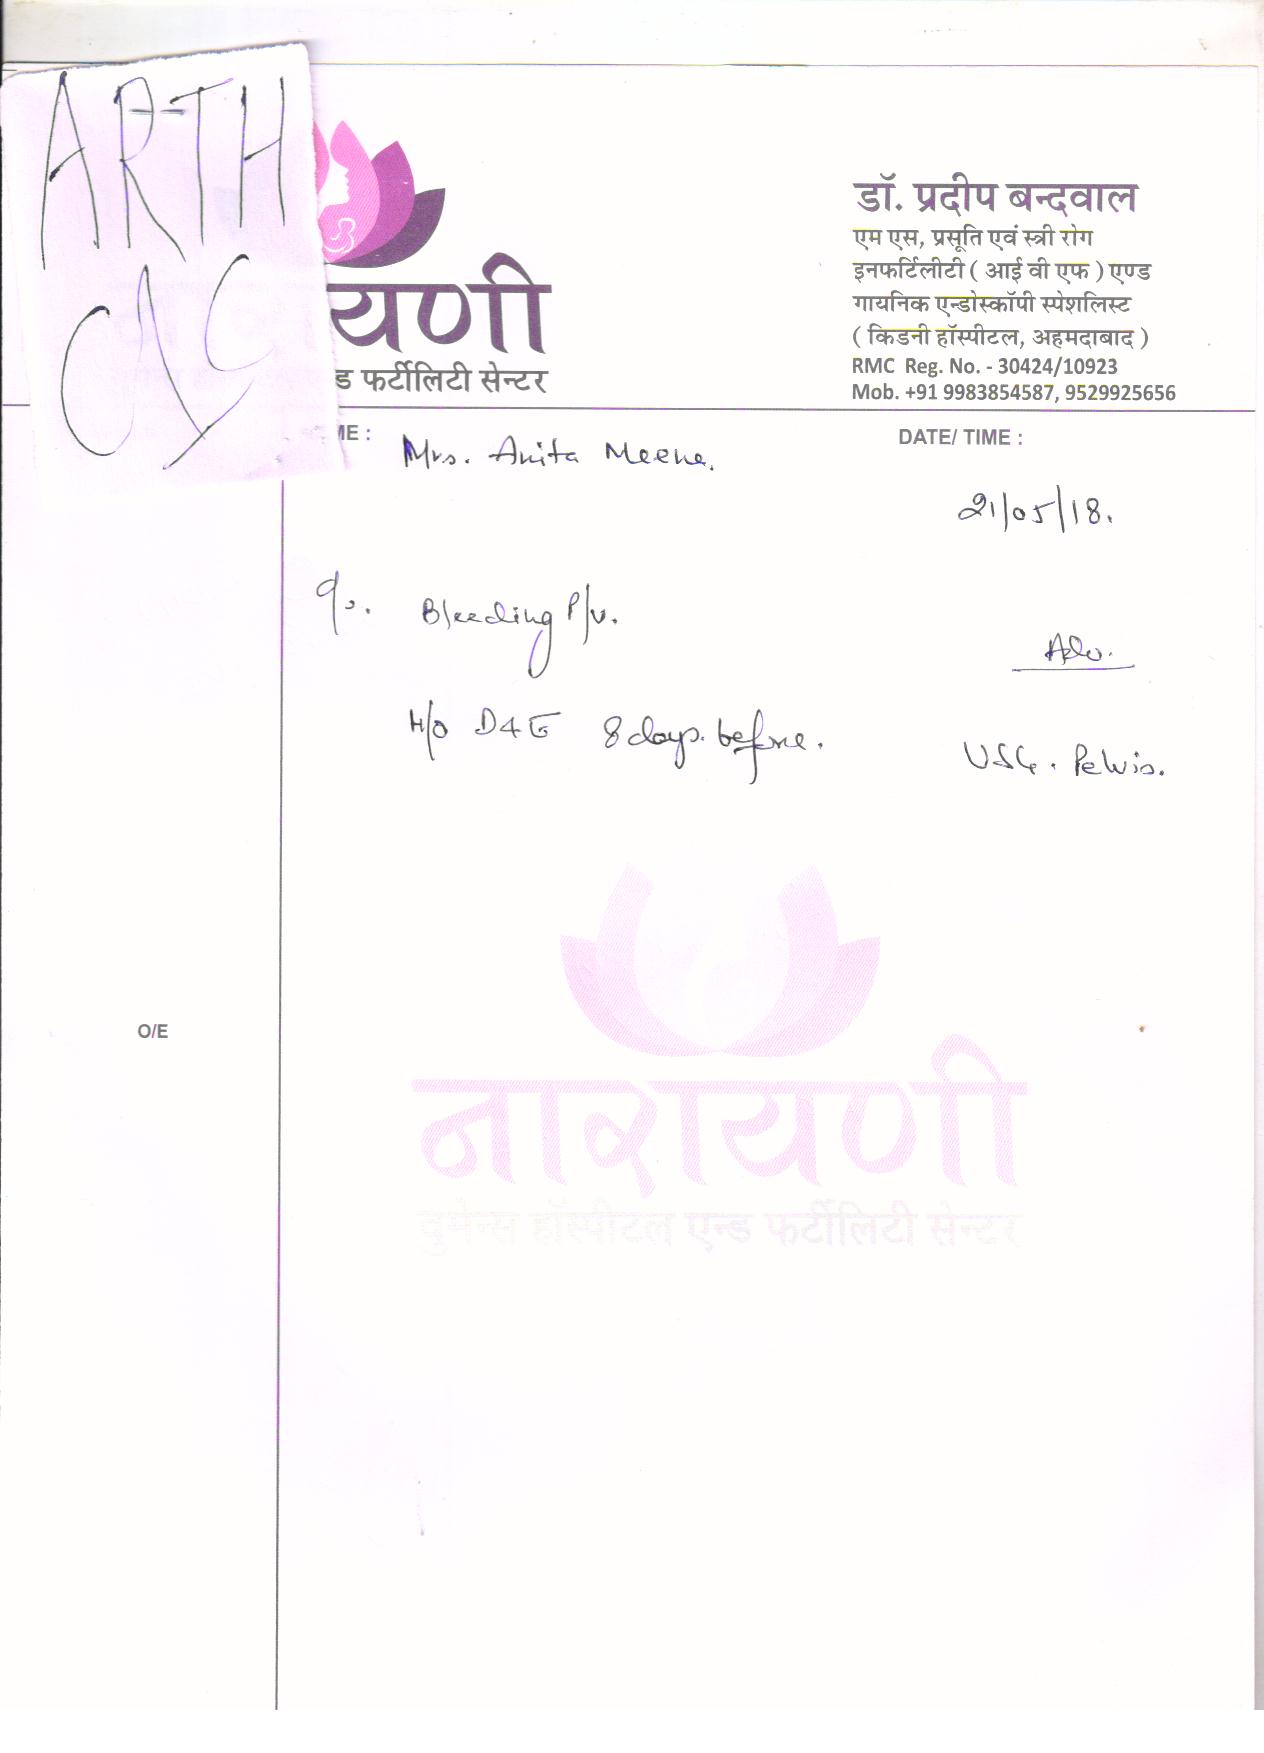 ARTH
डॉ. प्रदीप बन्दवाल
एम एस, प्रसूति एवं स्त्री रोग
इनफर्टिलीटी ( आई वी एफ ) एण्ड
गायनिक एन्डोस्कॉपी स्पेशलिस्ट
( किडनी हॉस्पीटल, अहमदाबाद )
RMC Reg. No. - 30424/10923
Mob. +91 9983854587, 9529925656
यणी
ड फर्टीलिटी सेन्टर
ME :
DATE/ TIME :
Mrs. Anita Meena.
21/05/18.
c/o. Bleeding P/v.
Adv.
H/O D&E 8 days. before.
USG. Pelvis.
O/E
नारायणी
वुमेन्स हॉस्पीटल एन्ड फर्टीलिटी सेन्टर